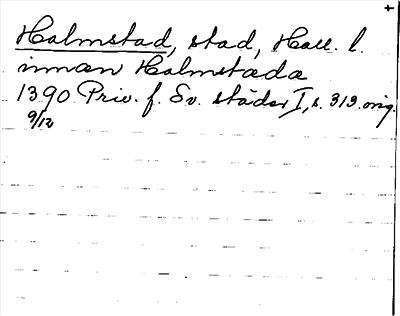 +
Halmstad, stad, Hall. l.
innan Halmstada
1390 Priv. f. Sv. städer I, s. 313. orig.
9/12